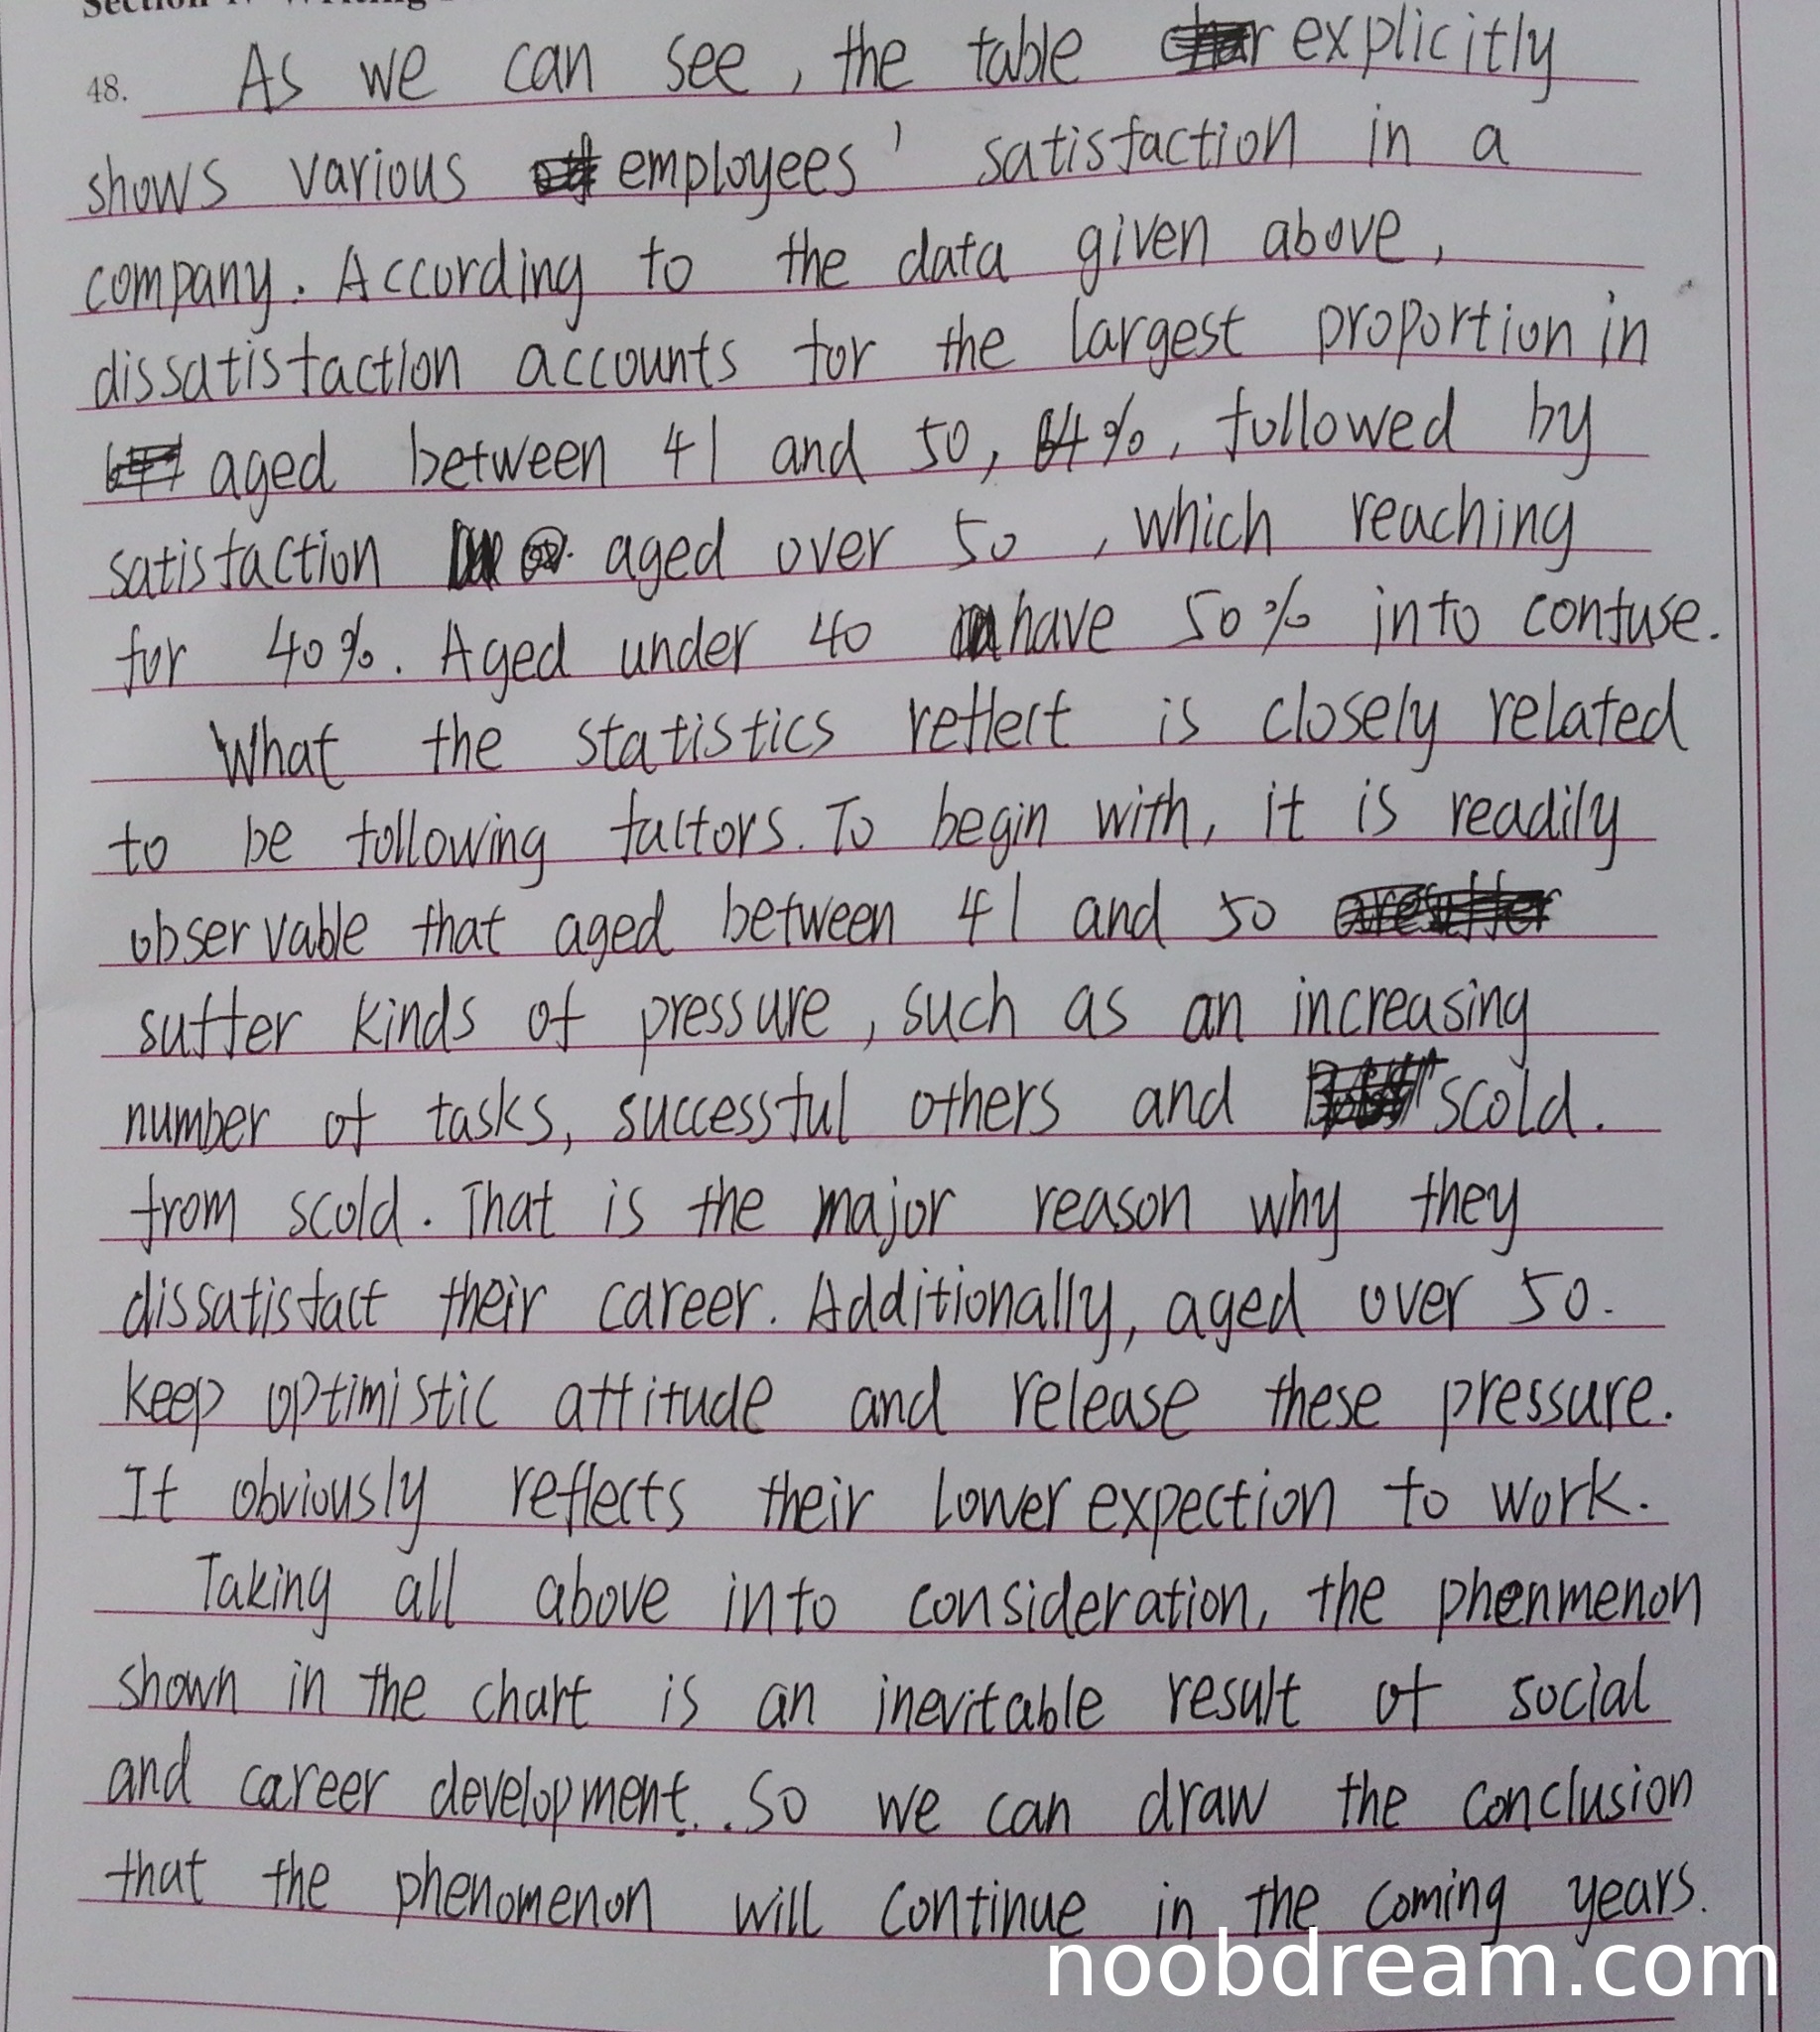 48. As we can see, the table explicitly
shows various employees' satisfaction in a
company. According to the data given above,
dissatisfaction accounts for the largest proportion in
aged between 41 and 50, 64%, followed by
satisfaction aged over 50, which reaching
for 40%. Aged under 40 have 50% into confuse.
What the statistics reflect is closely related
to be following factors. To begin with, it is readily
observable that aged between 41 and 50
suffer kinds of pressure, such as an increasing
number of tasks, successful others and scold.
from scold. That is the major reason why they
dissatisfact their career. Additionally, aged over 50.
keep optimistic attitude and release these pressure.
It obviously reflects their lower expection to work.
Taking all above into consideration, the phenmenon
shown in the chart is an inevitable result of social
and career development. So we can draw the conclusion
that the phenomenon will continue in the coming years.
noobdream.com